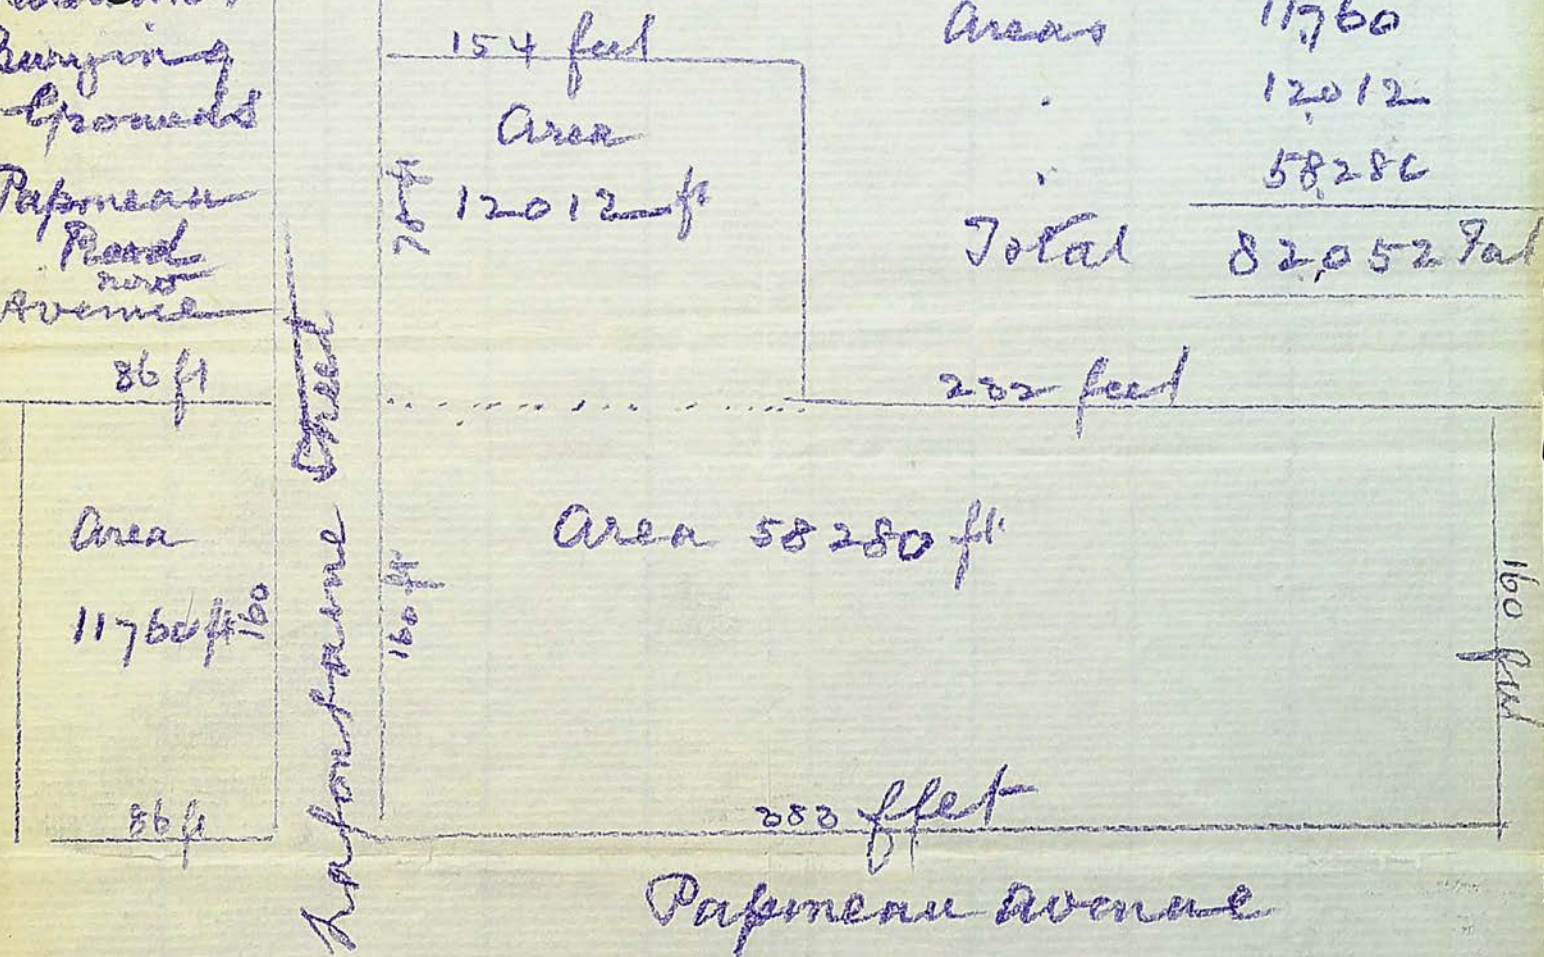 Burying
Grounds
Papineau
Road
now
Avenue
86 ft
Area
11760 ft
160
86 ft
Lafontaine Street
154 feet
Area
12012 ft
78 ft
Areas 11,760
" 12,012
" 58,280
Total 82,052
feet
Area 58280 ft
160 ft
160 feet
ffet
Papineau Avenue